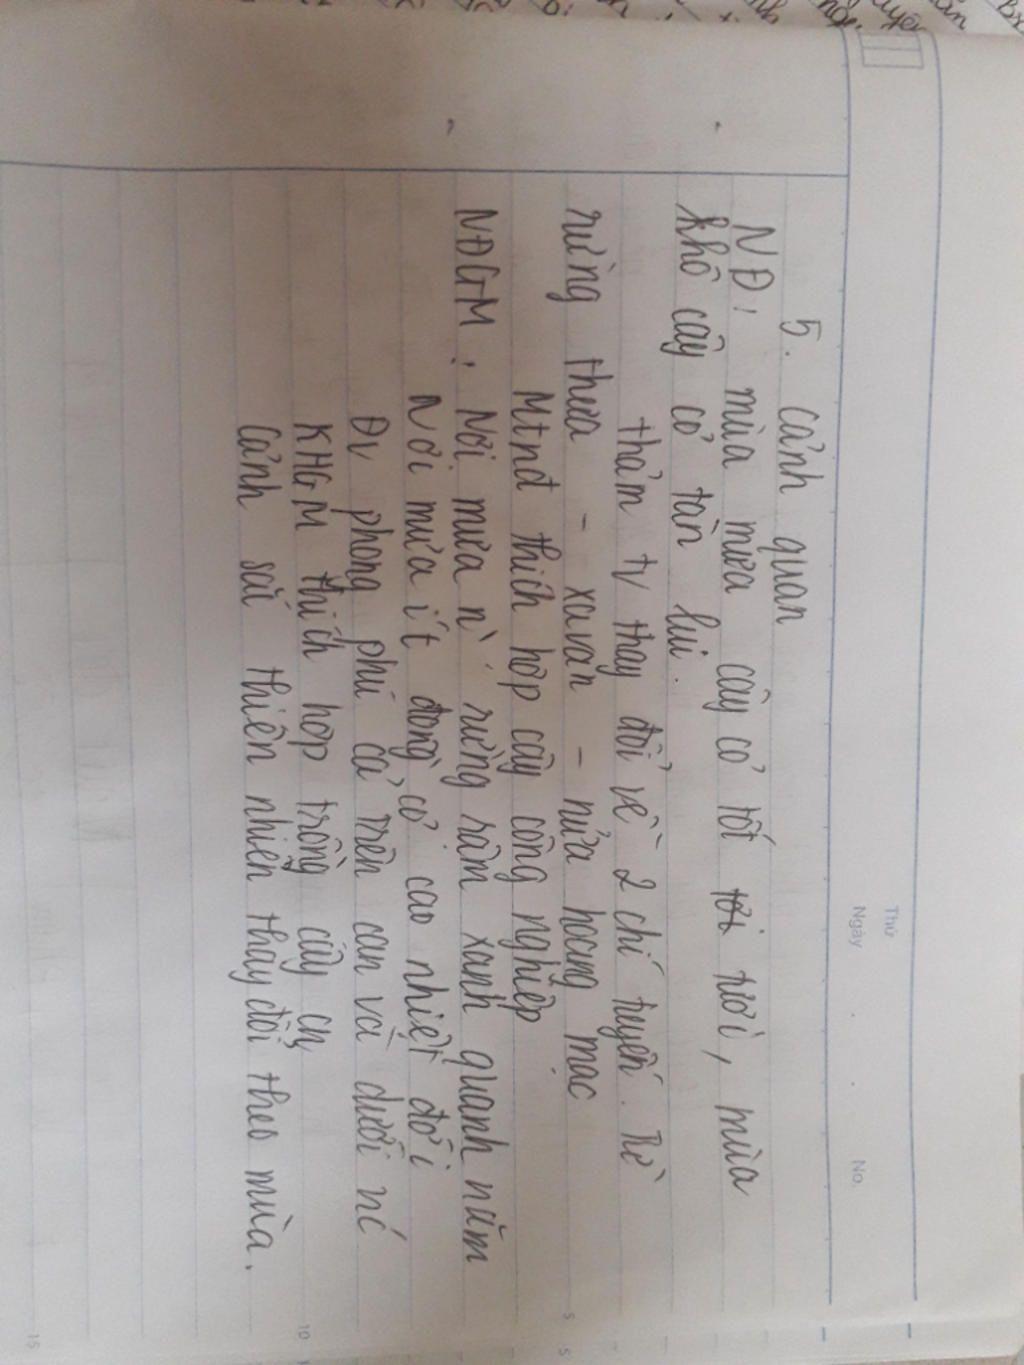 Thứ
Ngày . . No.
5. cảnh quan
NĐ: mùa mưa cây cỏ tốt tươi, mùa
khô cây cỏ tàn lụi.
thảm tv thay đổi về 2 chí tuyến. Từ
rừng thưa - xavan - nửa hoang mạc
Mtnđ thích hợp cây công nghiệp
NĐGM: Nơi mưa n`: rừng rậm xanh quanh năm
Nơi mưa ít đồng cỏ cao nhiệt đới
Đv phong phú cả trên cạn và dưới nc
KHGM thích hợp trồng cây cn
Cảnh sắc thiên nhiên thay đổi theo mùa.
5
10
15